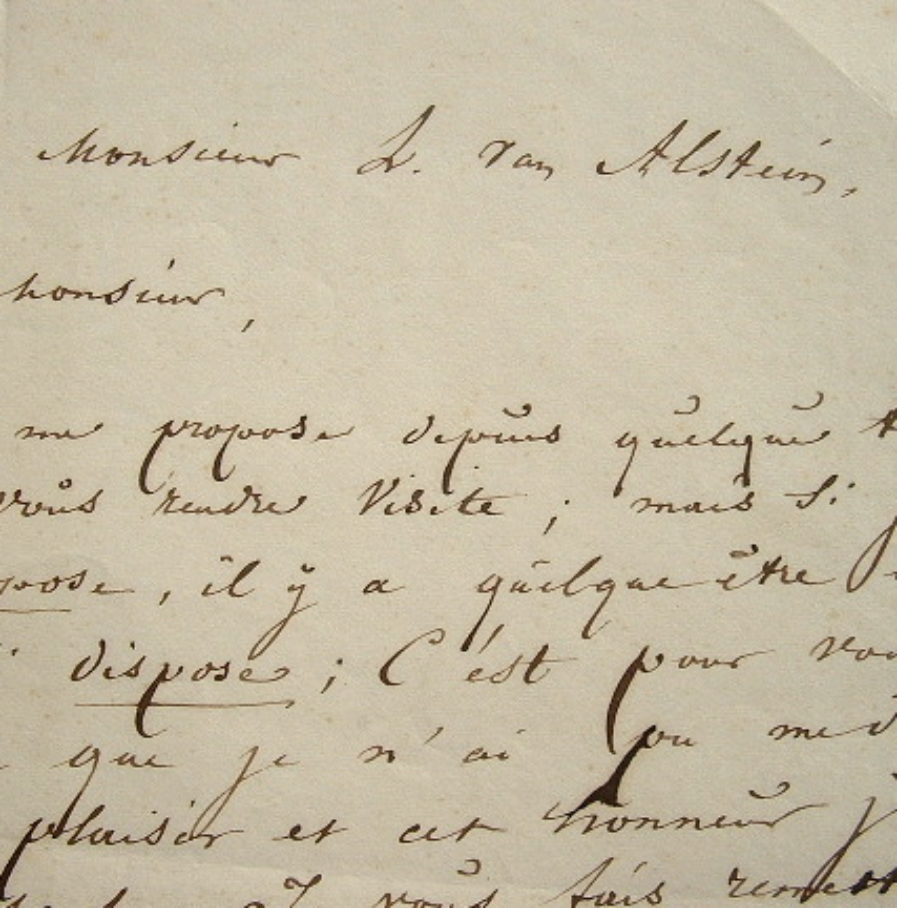 Monsieur L. van Alstein,
Monsieur,
me propose depuis quelque t
vous rendre visite ; mais si j
pose, il y a quelque être
dispose ; C'est pour vou
que je n'ai pu me d
plaisir et cet honneur j'
vous fais remett